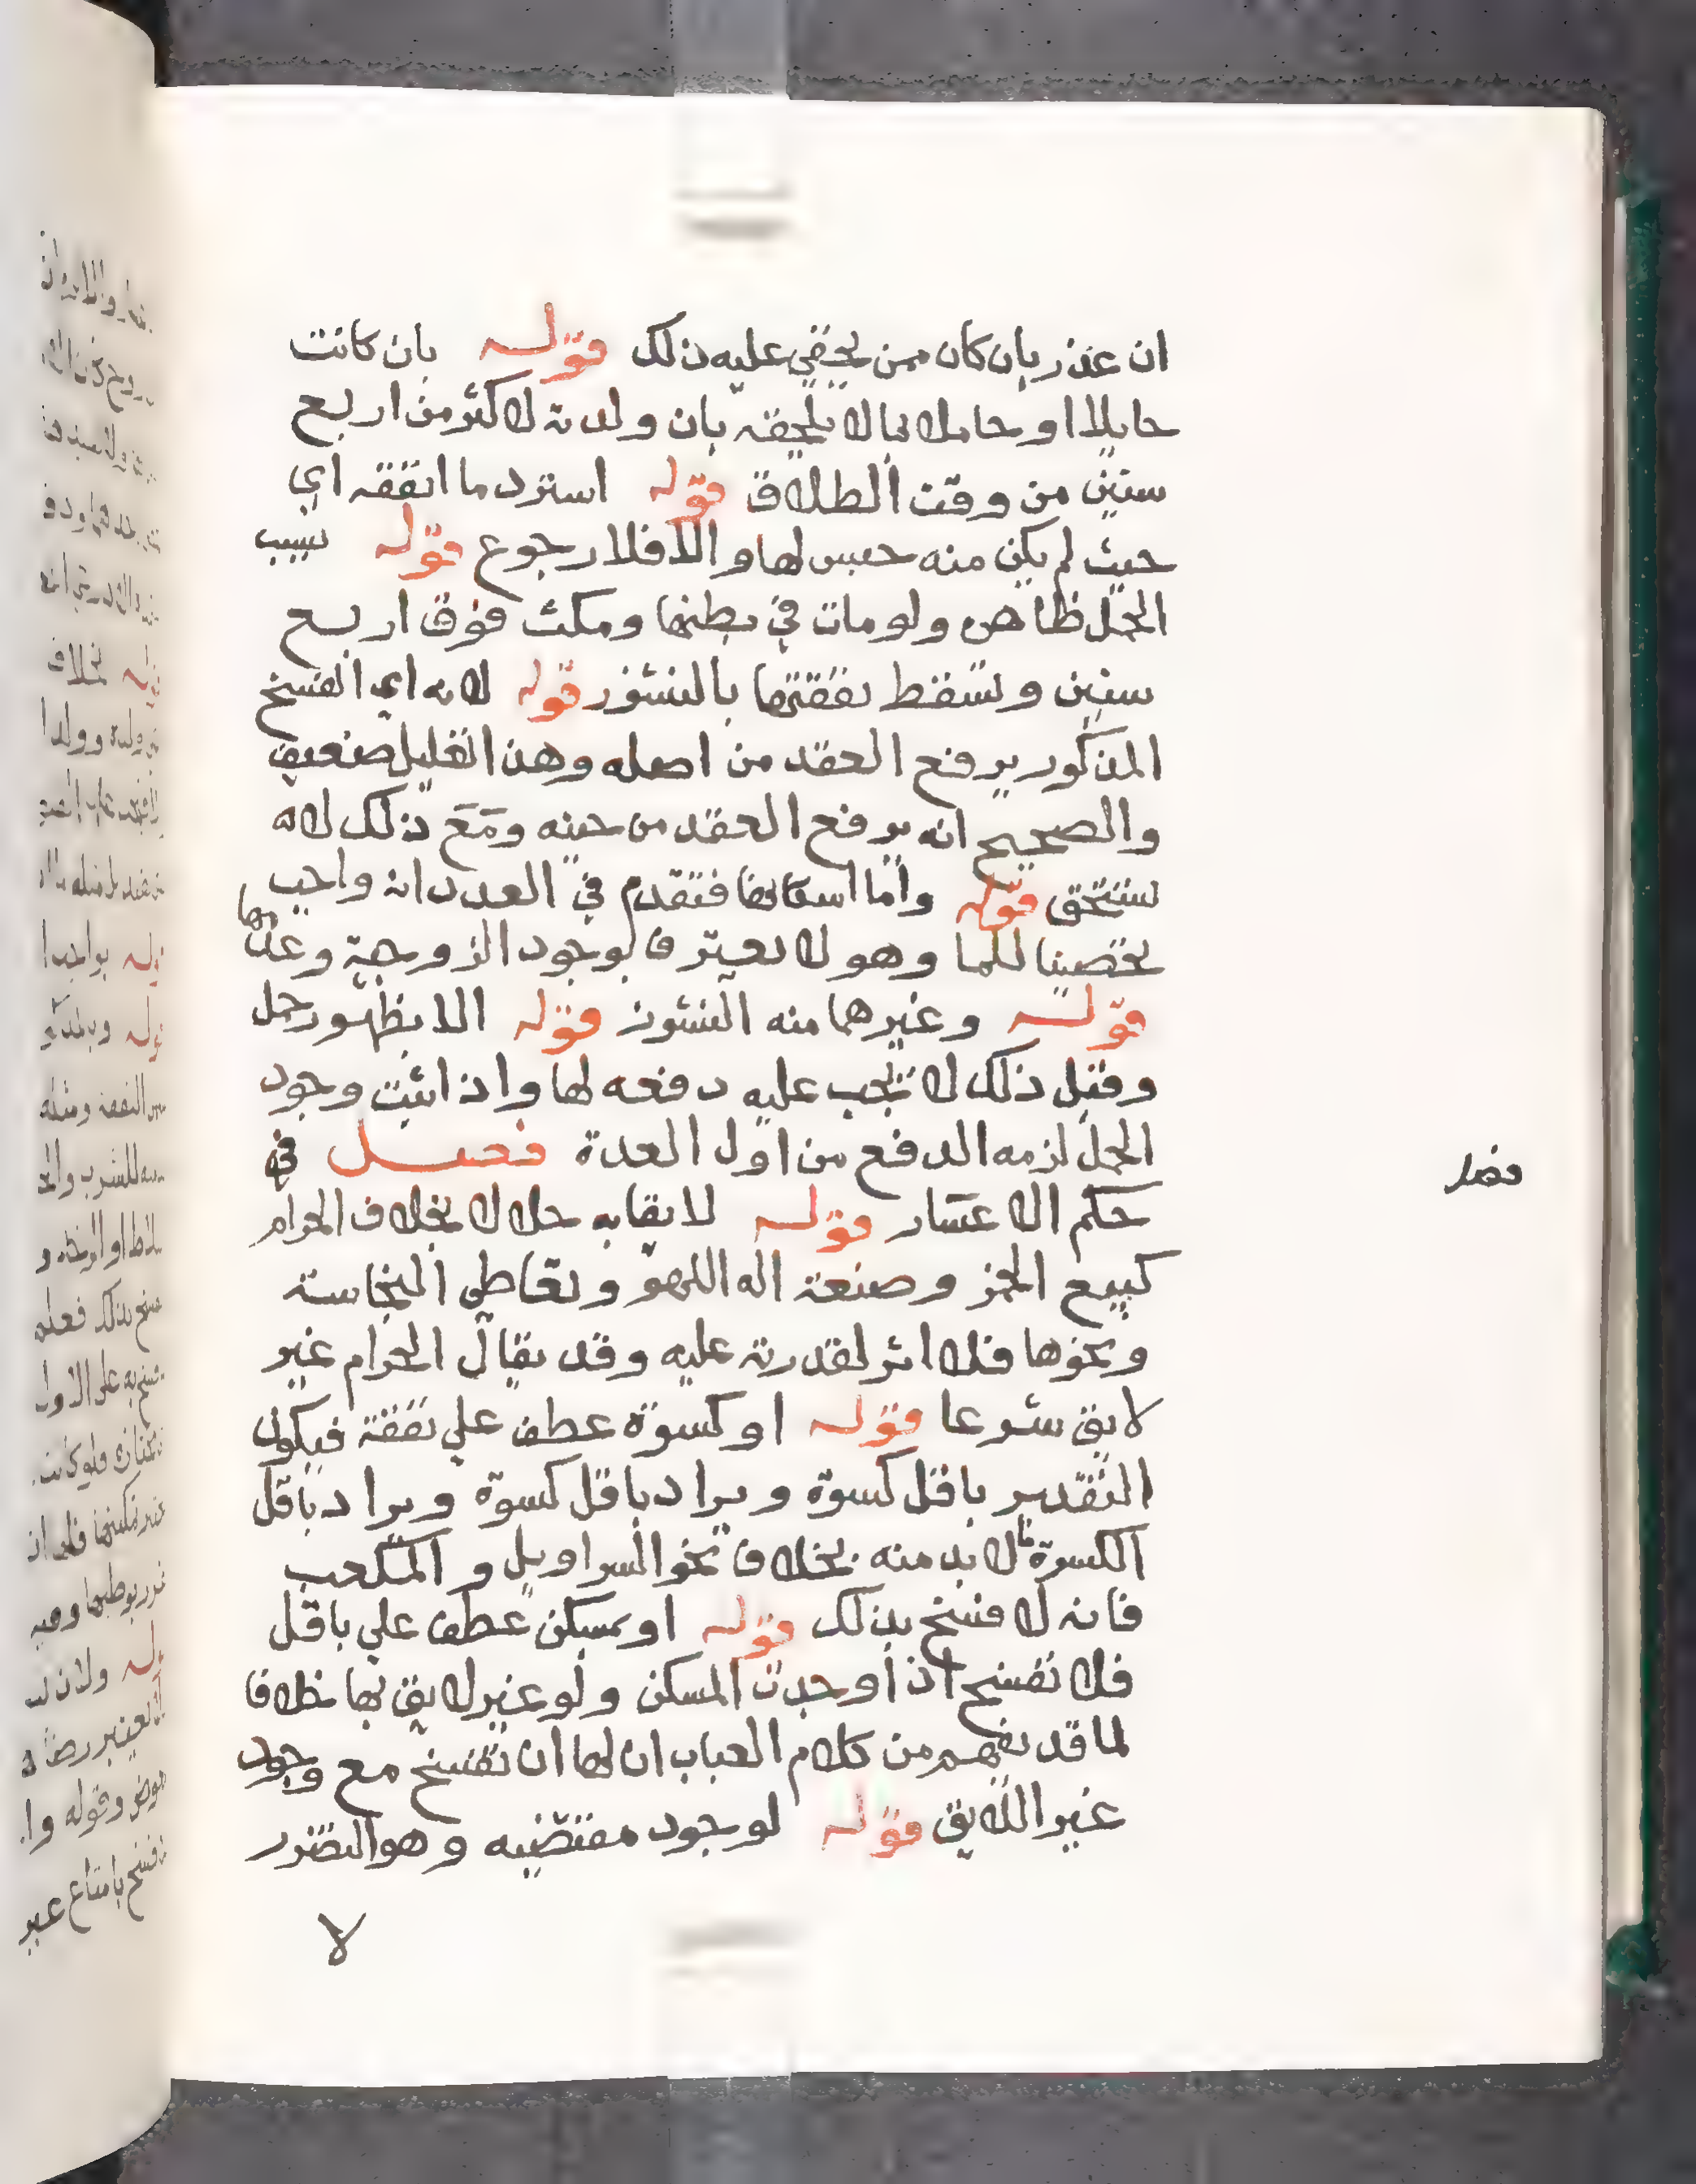 ان عذر بان كان ممن يخفي عليه ذلك قوله بان كانت
حايلا او حاملا بما لا يلحقه بان ولدته لاكثر من اربع
سنين من وقت الطلاق قوله استرد ما انفقه اي
حيث لم يكن منه حبس لها والا فلا رجوع قوله بسبب
الحمل ظاهر ولو مات في بطنها ومكث فوق اربع
سنين وتسقط نفقتها بالنشوز قوله لانه اي الفسخ
المذكور يرفع العقد من اصله وهذا التعليل ضعيف
والصحيح انه يرفع العقد من حينه ومع ذلك لا
تستحق قوله واما اسكانها فتقدم في العدد انه واجب
تحصينا للما وهو لا يفترق بوجود الزوجية وعدمها
قوله وغيرهما منه النشوز قوله الا بظهور حمل
وقبل ذلك لا يجب عليه دفعه لها واذا ثبت وجود
الحمل لزمه الدفع من اول العدة فصل في
حكم الاعسار قوله لايقا به حلالا بخلاف الحرام
كبيع الخمر وصنعة اله اللهو وتعاطي النجاسة
ونحوها فلا اثر لقدرته عليه وقد يقال الحرام غير
لايق شرعا قوله او كسوة عطف علي نفقة فيكون
التقدير باقل كسوة ويراد باقل كسوة ويراد باقل
الكسوة ما لا بد منه بخلاف نحو السراويل والمكعب
فانه لا فسخ بذلك قوله او بمسكن عطف علي باقل
فلا تفسخ اذا وجدت المسكن ولو غير لايق بها خلافا
لما قد يفهم من كلام العباب ان لها ان تفسخ مع وجود
غير اللايق قوله لوجود مقتضيه وهو التضرر
لا
فصل